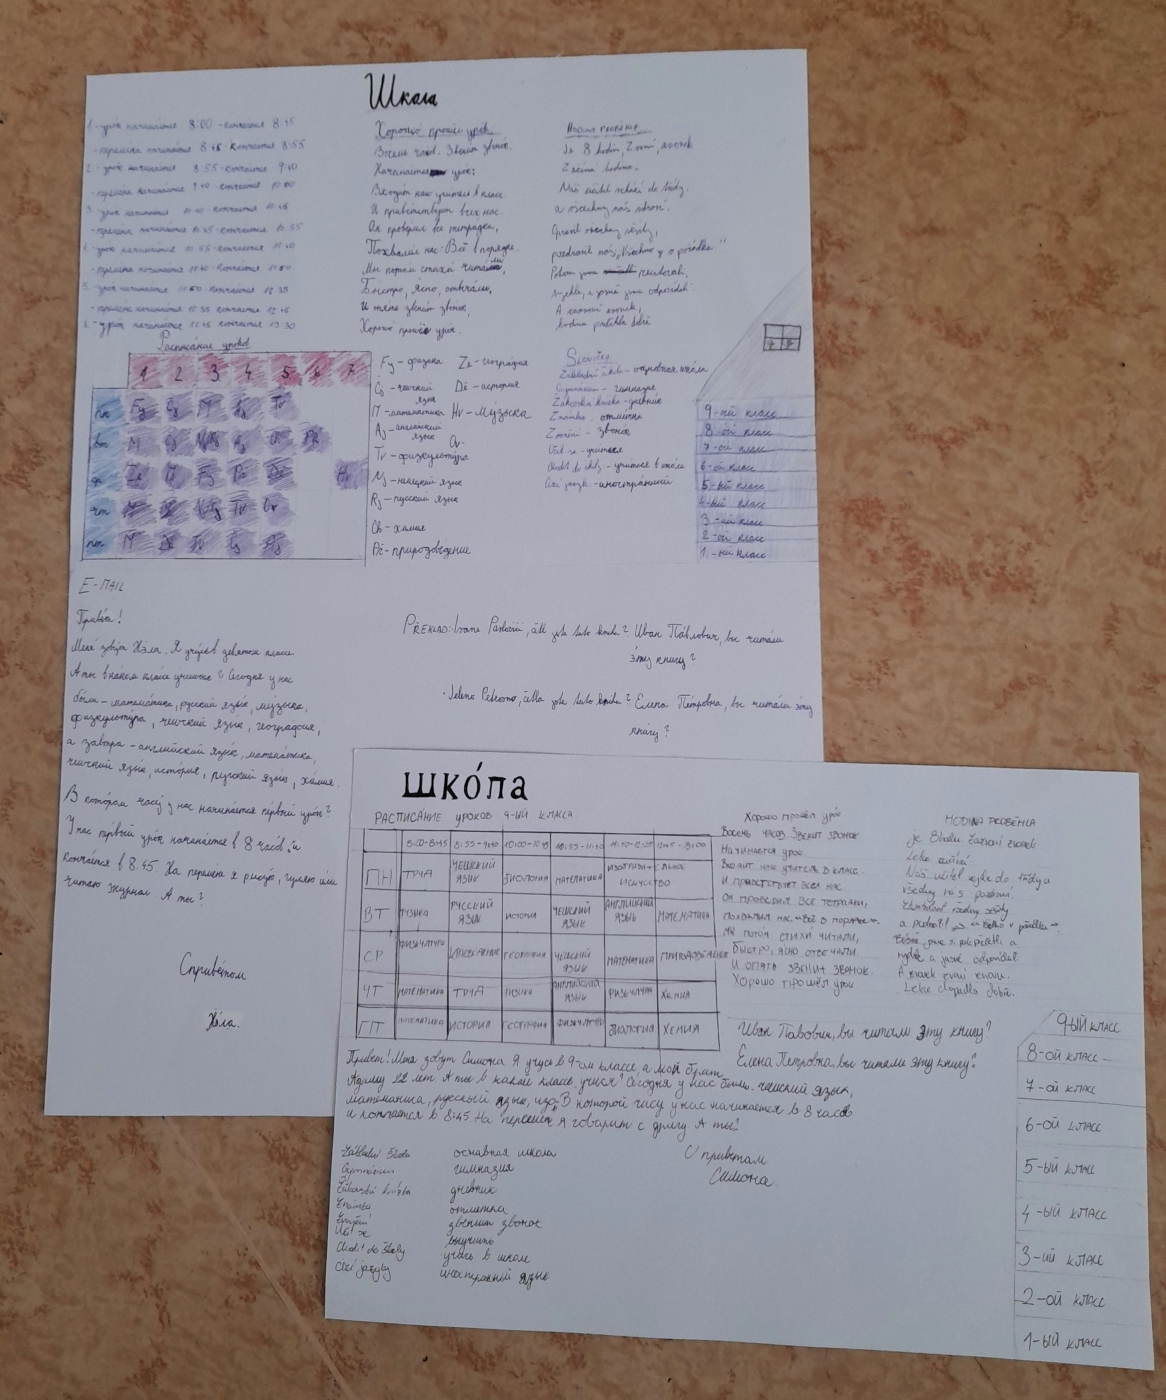 Школа
1 - урок начинается 8:00 - кончается 8:45
- перемена начинается 8:45 - кончается 8:55
2 - урок начинается 8:55 - кончается 9:40
- перемена начинается 9:40 - кончается 10:00
3 - урок начинается 10:00 - кончается 10:45
- перемена начинается 10:45 - кончается 10:55
4 - урок начинается 10:55 - кончается 11:40
- перемена начинается 11:40 - кончается 11:50
5 - урок начинается 11:50 - кончается 12:35
- перемена начинается 12:35 кончается 12:45
6 - урок начинается 12:45 кончается 13:30
Хорошо прошёл урок
Восемь часов. Звенит звонок.
Начинается урок:
Входит наш учитель в класс
И приветствует всех нас.
Он проверил все тетрадки,
Похвалил нас: Всё в порядке.
Мы потом стихи читали,
Быстро, ясно, отвечали,
И опять звенит звонок,
Хорошо прошёл урок.
Hodina proběhla
Je 8 hodin, Zvoní zvonek
Začíná hodina.
Náš učitel vchází do třídy.
a všechny nás zdraví.
všechny sešity,
nás, Všechno je v pořádku."
Potom jsme
rychle, a jasně jsme odpovídali
A znovu zvonek,
hodina proběhla dobře
Расписание уроков
1 2 3 4 5 6 7
Fy - физика Ze - география
Čj - чешский язык Dě - история
М - математика Hv - музыка
Aj - английский язык
Tv - физкультура
Nj - немецкий язык
Rj - русский язык
Ch - химия
Př - природоведение
Slovíčka
Základní škola - основная школа
Gymnázium - гимназия
Žákovská knížka - дневник
Známka - отметка
Zvonění - звонок
Učit se - учиться
Chodit do školy - учиться в школе
Cizí jazyk - иностранный
9-ый класс
8-ой класс
7-ой класс
6-ой класс
5-ый класс
4-ый класс
3-ий класс
2-ой класс
1-ый класс
E-MAIL
Привет!
Меня зовут Нэла. Я учусь в девятом классе.
А ты в каком классе учишься? Сегодня у нас
были - математика, русский язык, музыка,
физкультура, чешский язык, география,
а завтра - английский язык, математика,
чешский язык, история, русский язык, химия.
В котором часу у нас начинается первый урок?
У нас первый урок начинается в 8 часов, и
кончается в 8.45. На перемене я рисую, гуляю или
читаю журнал. А ты?
С приветом
Нэла.
PŘEKLAD: Ivane Pavloviči, četl jste tuto knihu? Иван Павлович, вы читали
эту книгу?
· Jeleno Petrovno, četla jste tuto knihu? Елена Петровна, вы читали эту
книгу?
ШКО́ЛА
РАСПИСА́НИЕ УРОКОВ 9-ЫЙ КЛАССА
8:00-8:45 8:55-9:40 10:00-10:45 10:55-11:40 11:50-12:35 12:45-13:00
ПН ТРУД ЧЕШСКИЙ ЯЗЫК БИОЛОГИЯ МАТЕМАТИКА ИЗОБРАЗИ-ТЕЛЬНОЕ ИСКУССТВО
ВТ РУССКИЙ ЯЗЫК ИСТОРИЯ ЧЕШСКИЙ ЯЗЫК АНГЛИЙСКИЙ ЯЗЫК МАТЕМАТИКА
СР ФИЗКУЛТУРА ГЕОГРАФИЯ ЧЕШСКИЙ ЯЗЫК МАТЕМАТИКА
ЧТ МАТЕМАТИКА ТРУД АНГЛИЙСКИЙ ЯЗЫК ФИЗКУЛТУРА ХЕМИЯ
ПТ МАТЕМАТИКА ИСТОРИЯ ГЕОГРАФИЯ ФИЗКУЛТУРА БИОЛОГИЯ ХЕМИЯ
ХОРОШО ПРОШЁЛ УРОК
ВОСЕМЬ ЧАСОВ ЗВЕНИТ ЗВОНОК
НАЧИНАЕТСЯ УРОК
ВХОДИТ НАШ УЧИТЕЛЬ В КЛАСС
И ПРИВЕТСТВУЕТ ВСЕХ НАС
ОН ПРОВЕРИЛ ВСЕ ТЕТРАДКИ,
ПОХВАЛИЛ НАС: "ВСЁ В ПОРЯДКЕ".
МЫ ПОТОМ СТИХИ ЧИТАЛИ,
БЫСТРО, ЯСНО ОТВЕЧАЛИ.
И ОПЯТЬ ЗВЕНИТ ЗВОНОК
ХОРОШО ПРОШЁЛ УРОК
HODINA PROBĚHLA
je 8 hodin. Zazvoní zvonek
Lekce začíná.
Náš učitel vejde do třídy a
všechny nás pozdraví.
všechny sešity
rychle a jasně odpovídali
A zvonek zvoní znovu.
Lekce dopadla dobře.
Иван Павович, вы читали эту книгу?
Елена Петровна, вы читали эту книгу?
Привет! Меня зовут Симона Я учусь в 9-ом классе, а мой
А ты в каком классе учися? Сегодня у нас были: чешский язык,
математика, русский язык, изо. В которой часу у нас начинается в 8 часов
и кончается в 8:45. На перемене я говорит с другу А ты?
С приветом
Симона.
Základní škola основная школа
Gymnázium гимназия
Žákovská knížka дневник
Známka отметка
Zvonění звенит звонок
Učit se выучить
Chodit do školy учусь в школе
Cizí jazyky иностранный язык
9-ЫЙ КЛАСС
8-ОЙ КЛАСС
7-ОЙ КЛАСС
6-ОЙ КЛАСС
5-ЫЙ КЛАСС
4-ЫЙ КЛАСС
3-ИЙ КЛАСС
2-ОЙ КЛАСС
1-ЫЙ КЛАСС